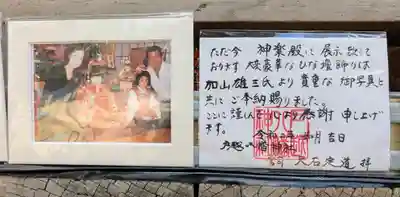 ただ今 神楽殿にて展示致して
おります 大変豪華なひな壇飾りは
加山雄三氏より貴重な御写真と
共にご奉納賜りました。
ここに謹んで心より感謝申し上げ
ます。
令和 年 月吉日
八幡神社
宮司 大石 道 拝